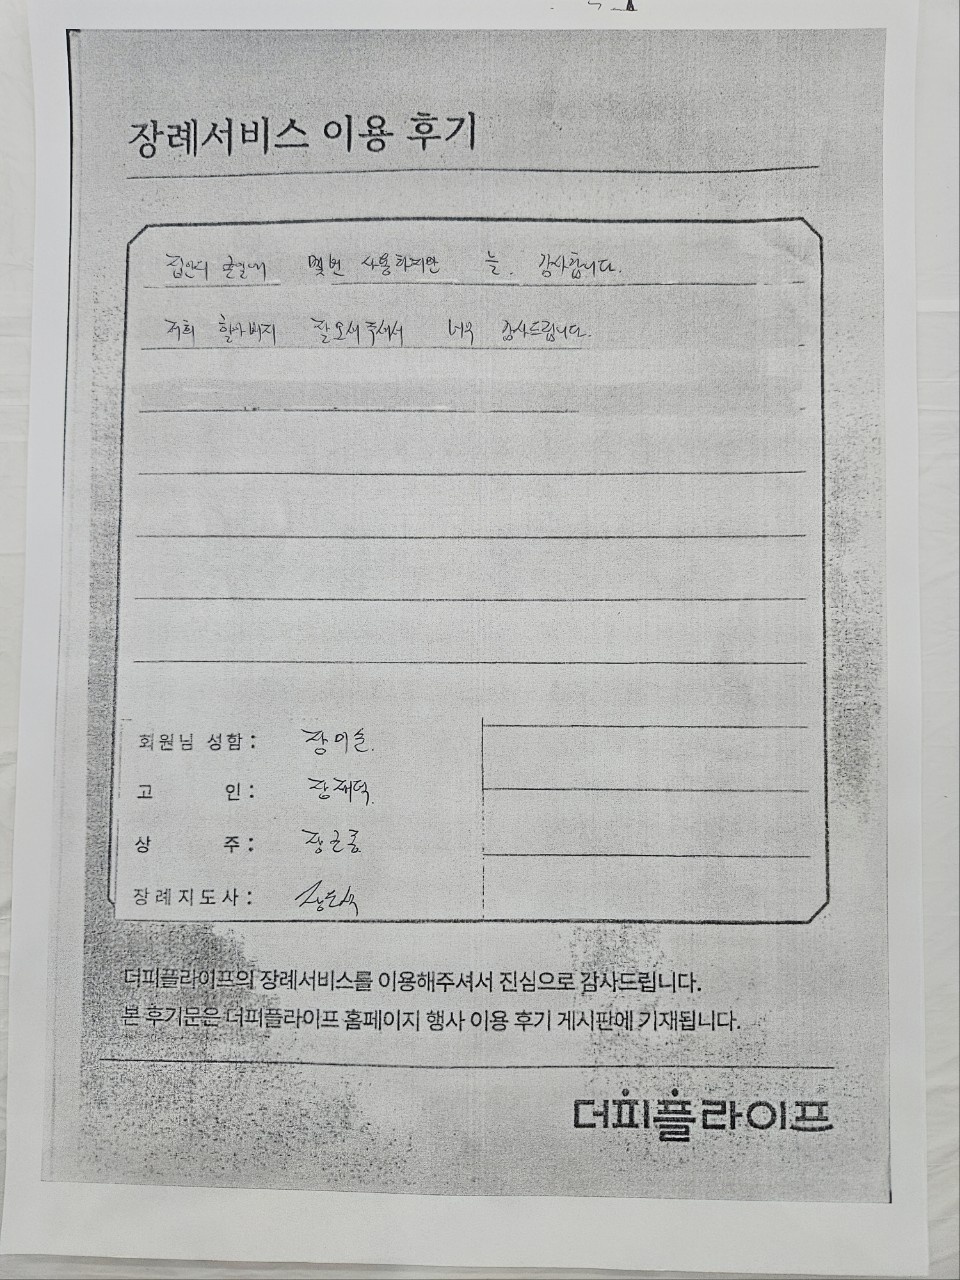 장례서비스 이용 후기
집안의 큰일에 몇번 사용하지만 늘. 감사합니다.
저희 할아버지 잘 모셔주셔서 너무 감사드립니다.
회원님 성함 : 장이슬.
고 인 : 장재덕.
상 주 :
장례지도사 :
더피플라이프의 장례서비스를 이용해주셔서 진심으로 감사드립니다.
본 후기문은 더피플라이프 홈페이지 행사 이용 후기 게시판에 기재됩니다.
더피플라이프